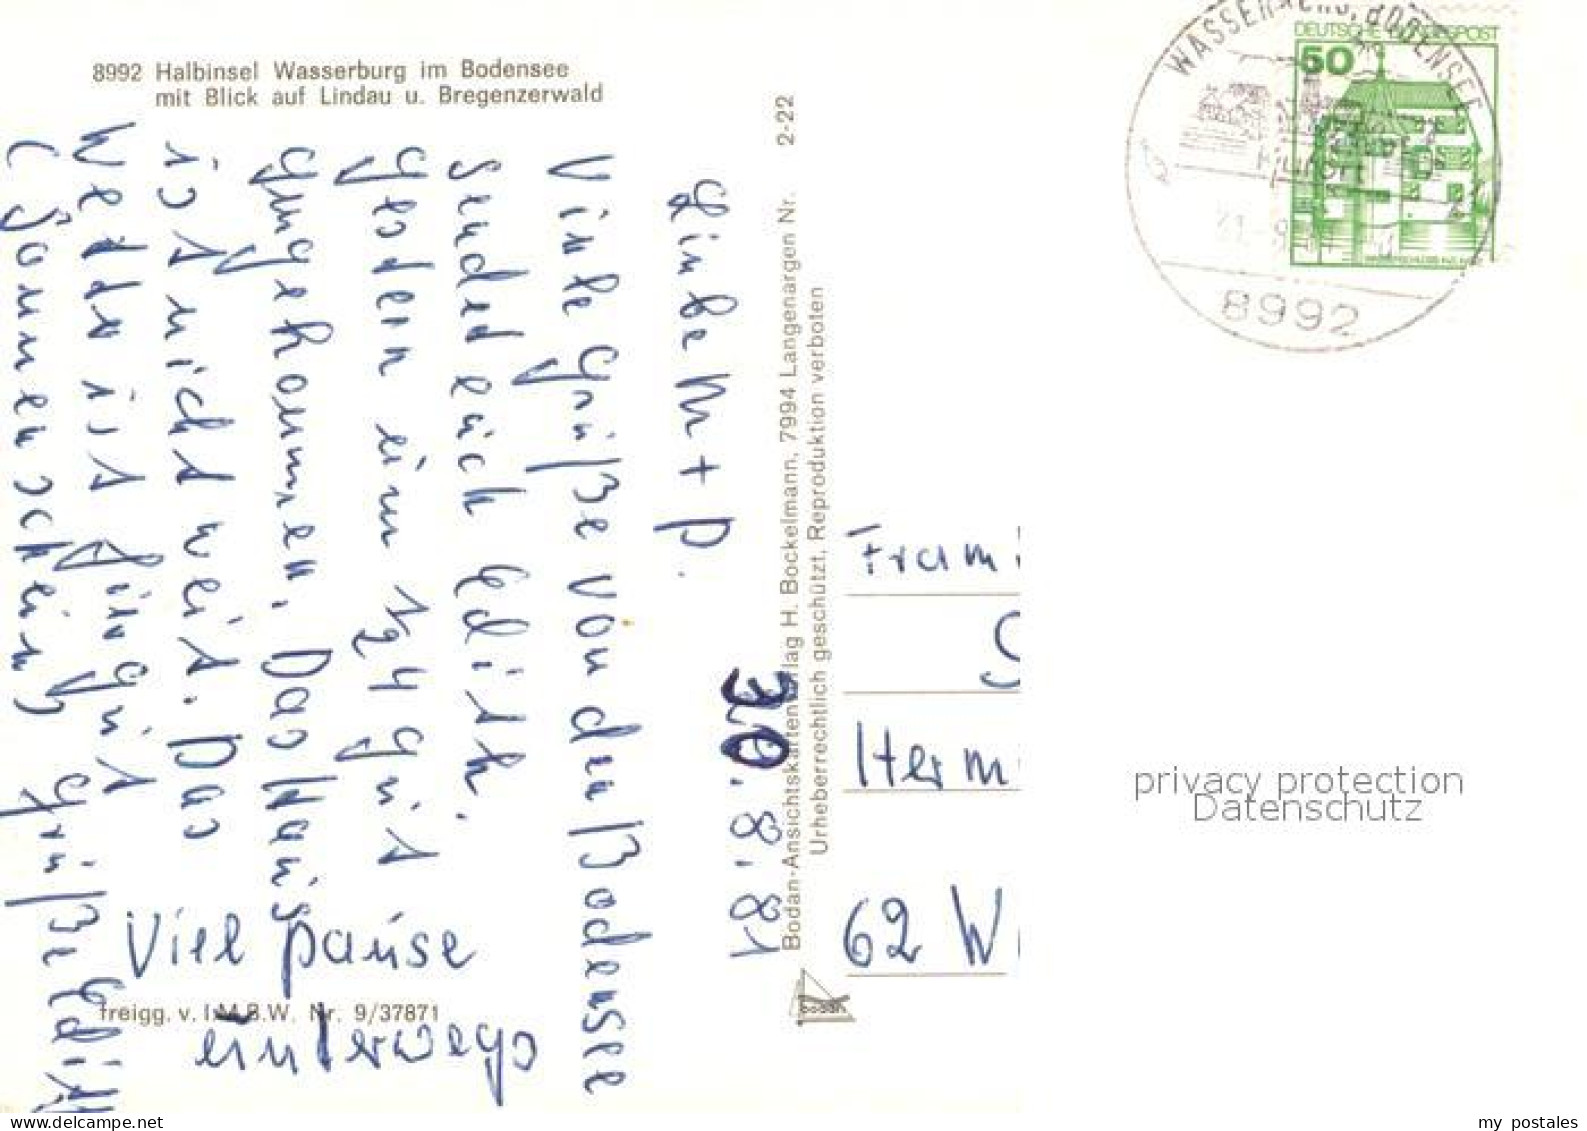 8992 Halbinsel Wasserburg im Bodensee
mit Blick auf Lindau u. Bregenzerwald
30.8.81
Liebe M + P.
Viele Grüße von den Bodensee
sendet euch Edith.
gestern um 1/2 4 gut
angekommen. Das Haus
ist nicht weit. Das
Wetter ist ging gut
(Sonnenschein) Grüße Edith
Viel pause
unterwegs
freigg. v. I.M.B.W. Nr. 9/37871
Bodan-Ansichtskartenverlag H. Bockelmann, 7994 Langenargen Nr. 2-22
Urheberrechtlich geschützt, Reproduktion verboten
bodan
WASSERBURG, BODENSEE
8992
DEUTSCHE BUNDESPOST
50
Fam
Herm
62 W
privacy protection
Datenschutz
delcampe.net
my postales